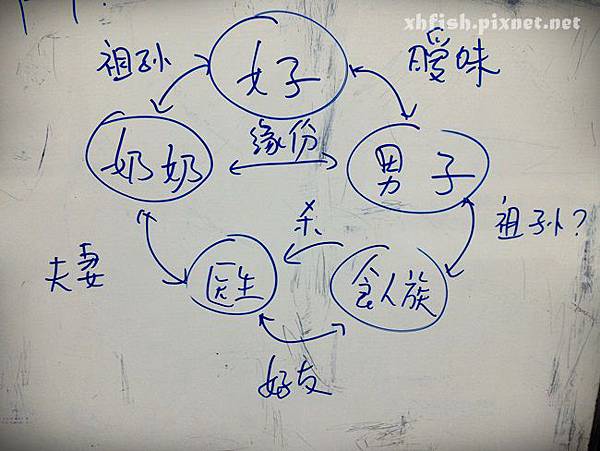 xhfish.pixnet.net
祖孙
女子
暧昧
奶奶
缘份
男子
杀
祖孙?
夫妻
医生
食人族
好友